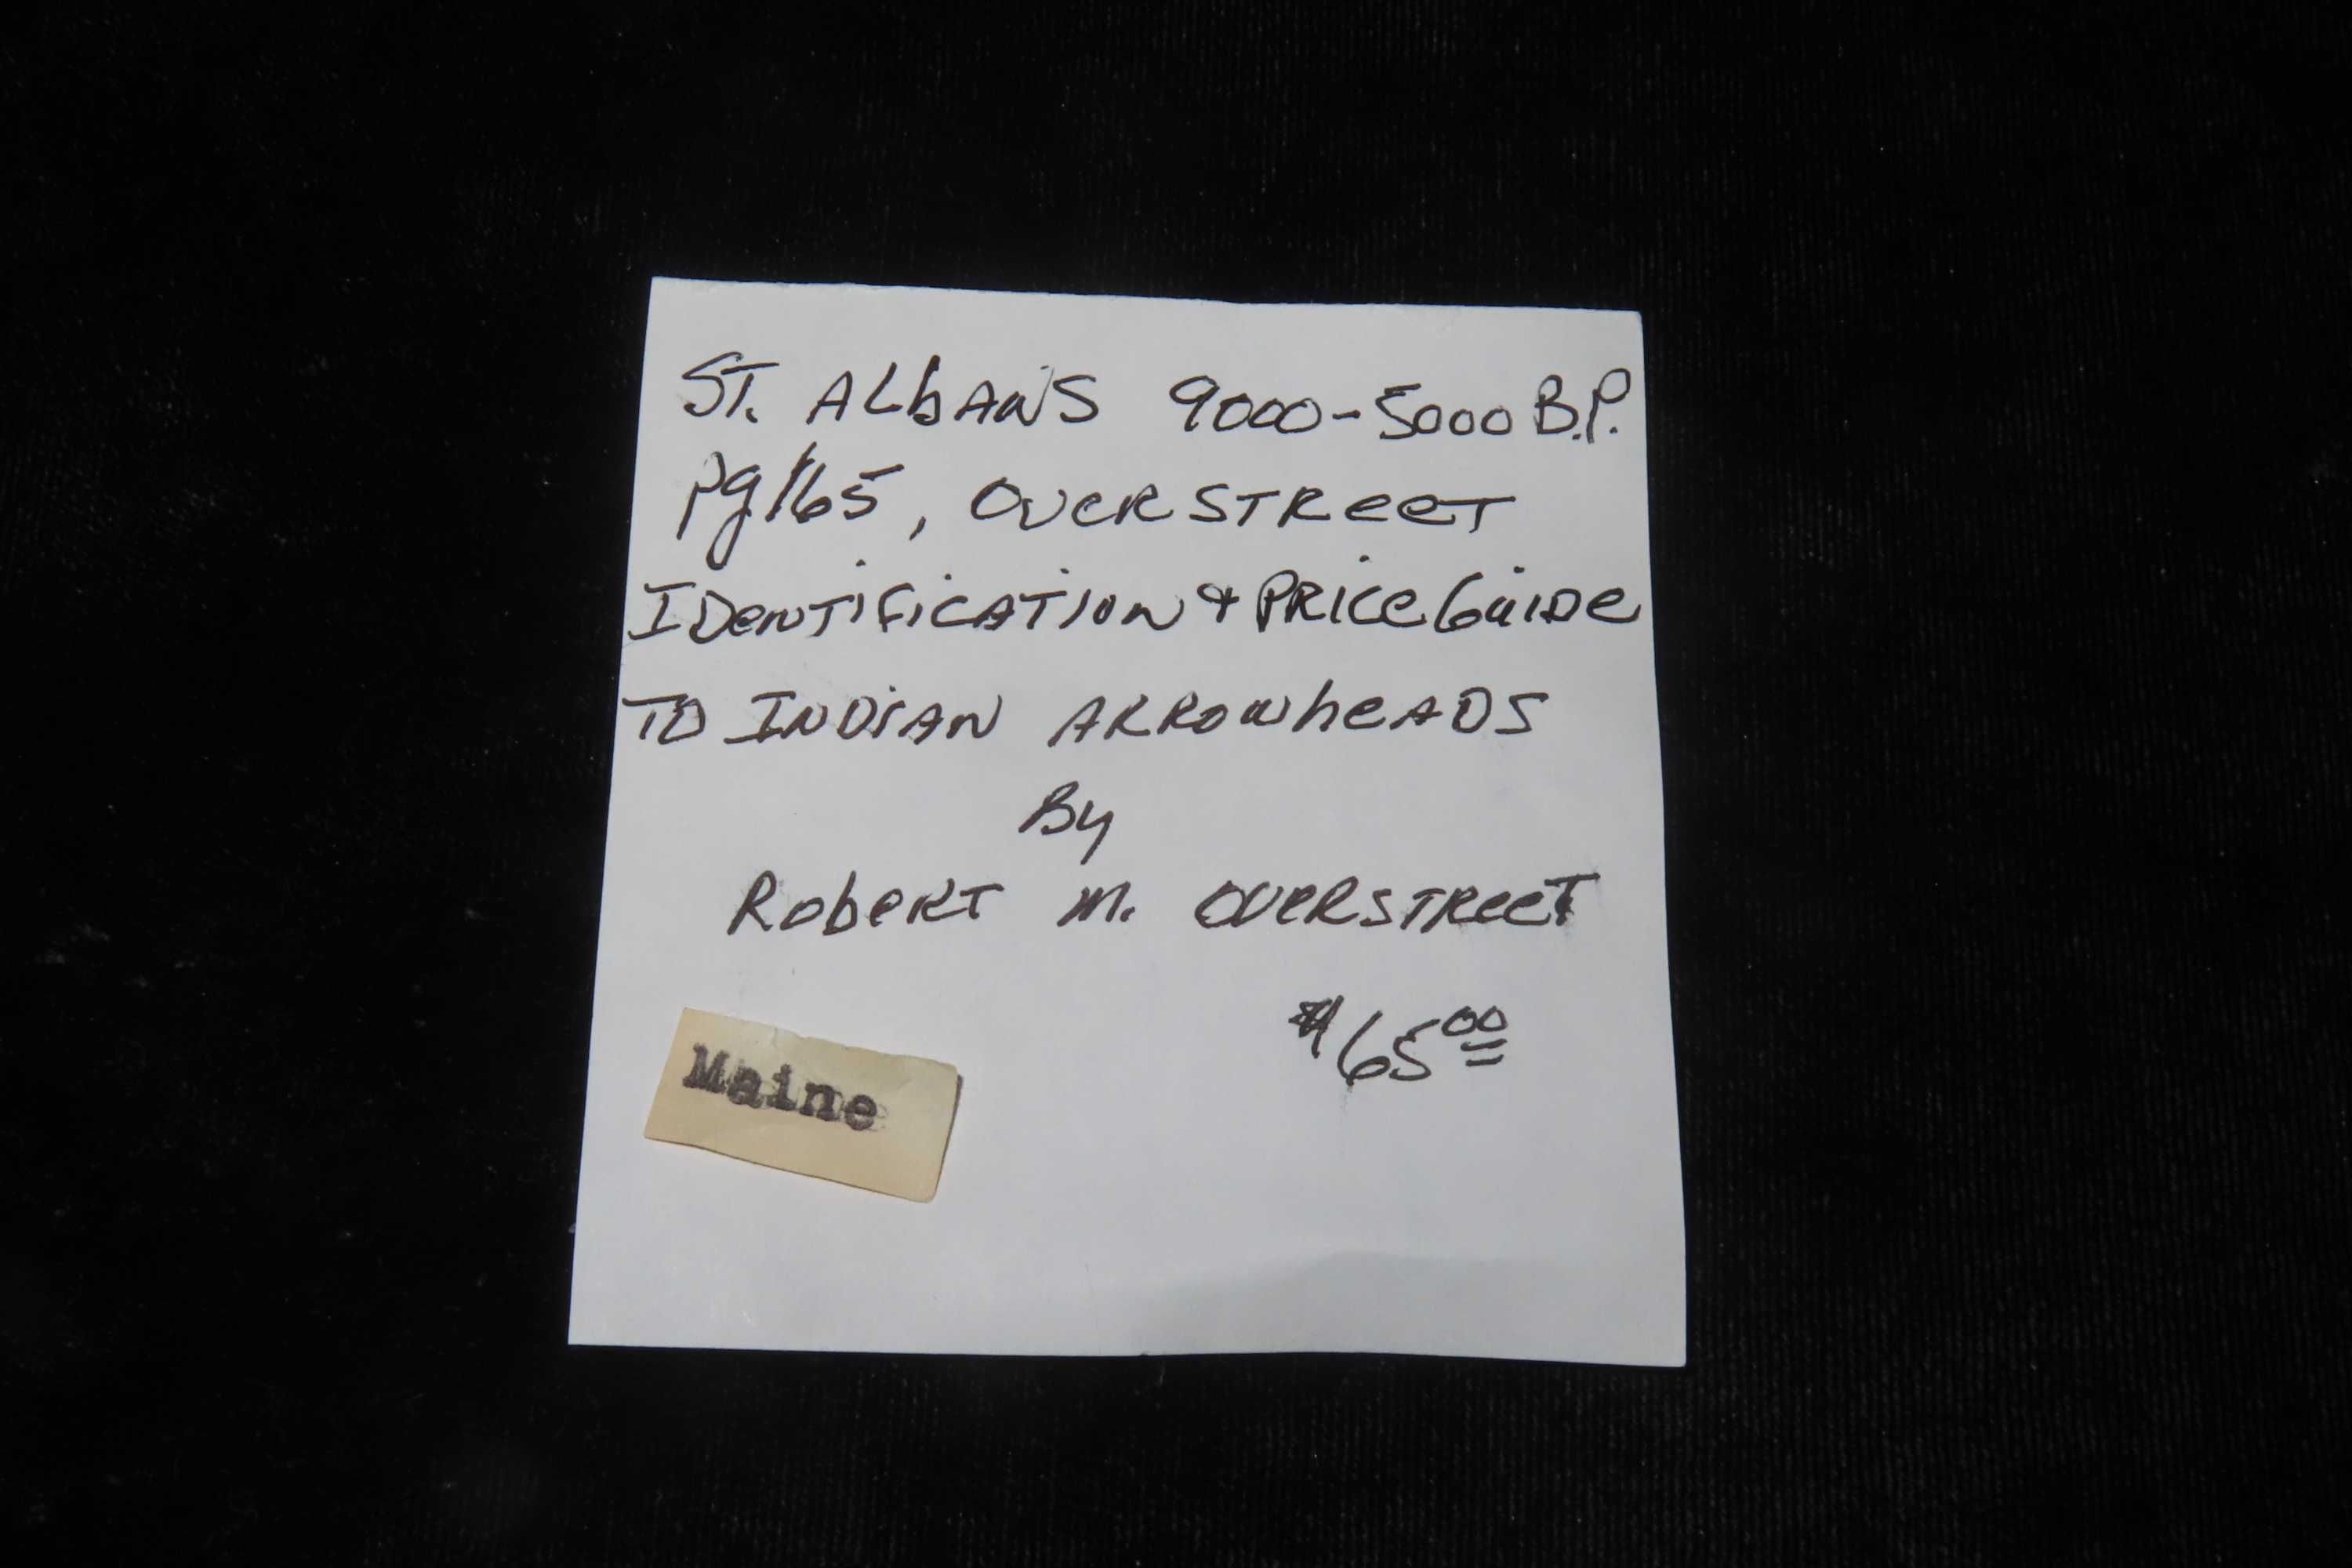 ST. ALbANS 9000-5000 B.P.
pg 165, OVERSTReeT
IDeNTiFiCATiON & PRiCe GuiDe
TO INDiAN ARROwheADS
By
RobeRT M. OVeRSTReeT
$65.00
Maine